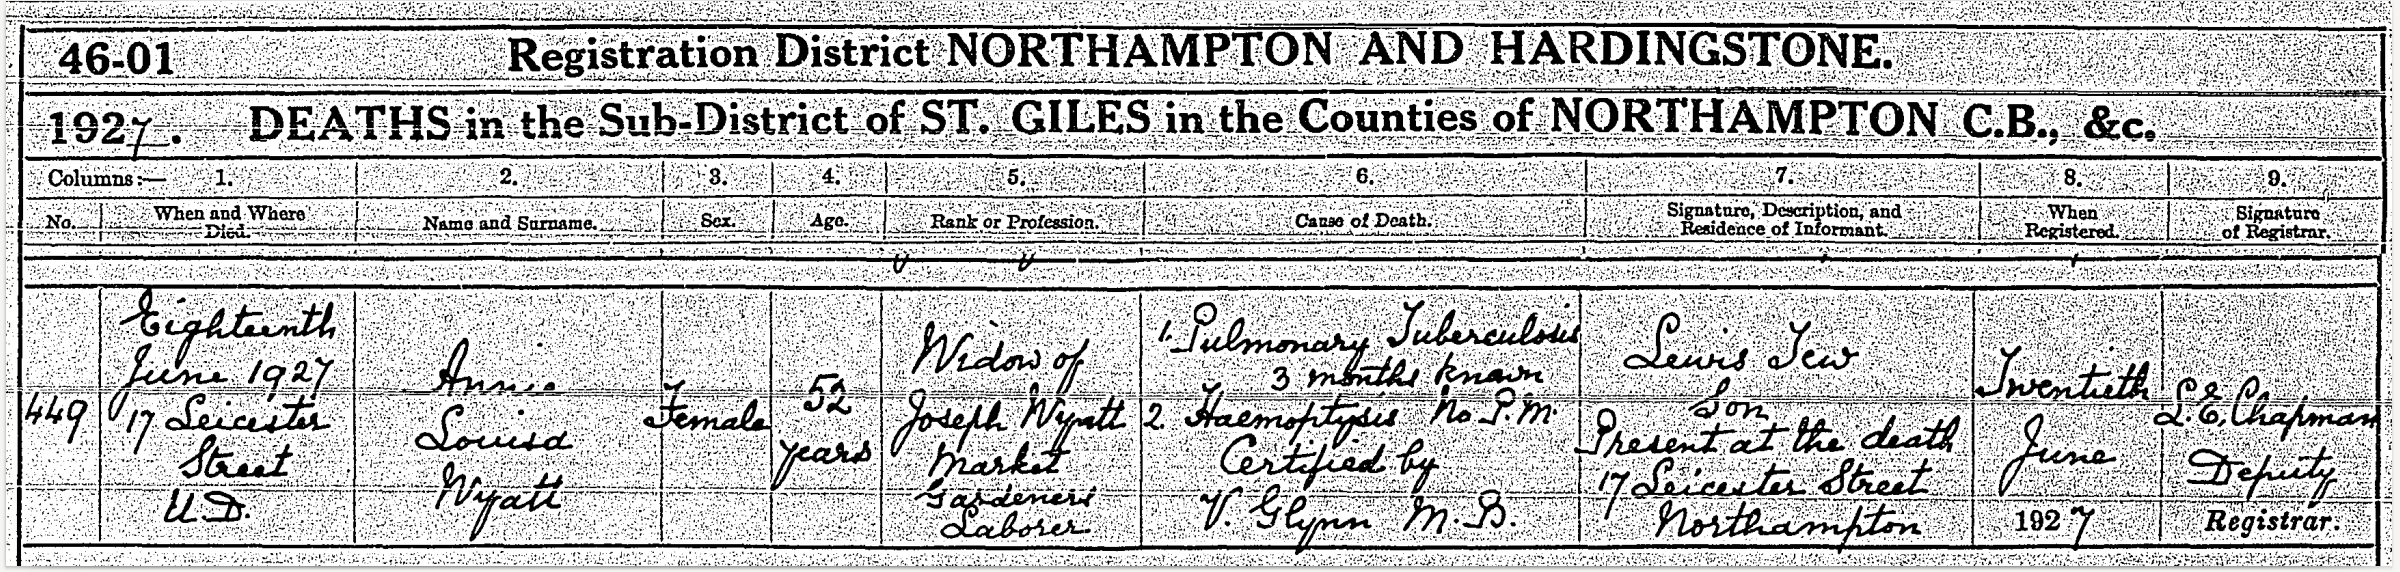 46-01 Registration District NORTHAMPTON AND HARDINGSTONE.
1927. DEATHS in the Sub-District of ST. GILES in the Counties of NORTHAMPTON C.B., &c.
Columns:— 1. 2. 3. 4. 5. 6. 7. 8. 9.
No. When and Where Died. Name and Surname. Sex. Age. Rank or Profession. Cause of Death. Signature, Description, and Residence of Informant. When Registered. Signature of Registrar.
449
Eighteenth
June 1927
17 Leicester
Street
U.D.
Annie
Louisa
Wyatt
Female
52
years
Widow of
Joseph Wyatt
Market
Gardeners
Laborer
1. Pulmonary Tuberculosis
3 months known
2. Haemoptysis No P.M.
Certified by
V. Glynn M.B.
Lewis Tew
Son
Present at the death
17 Leicester Street
Northampton
Twentieth
June
1927
L.E. Chapman
Deputy
Registrar.